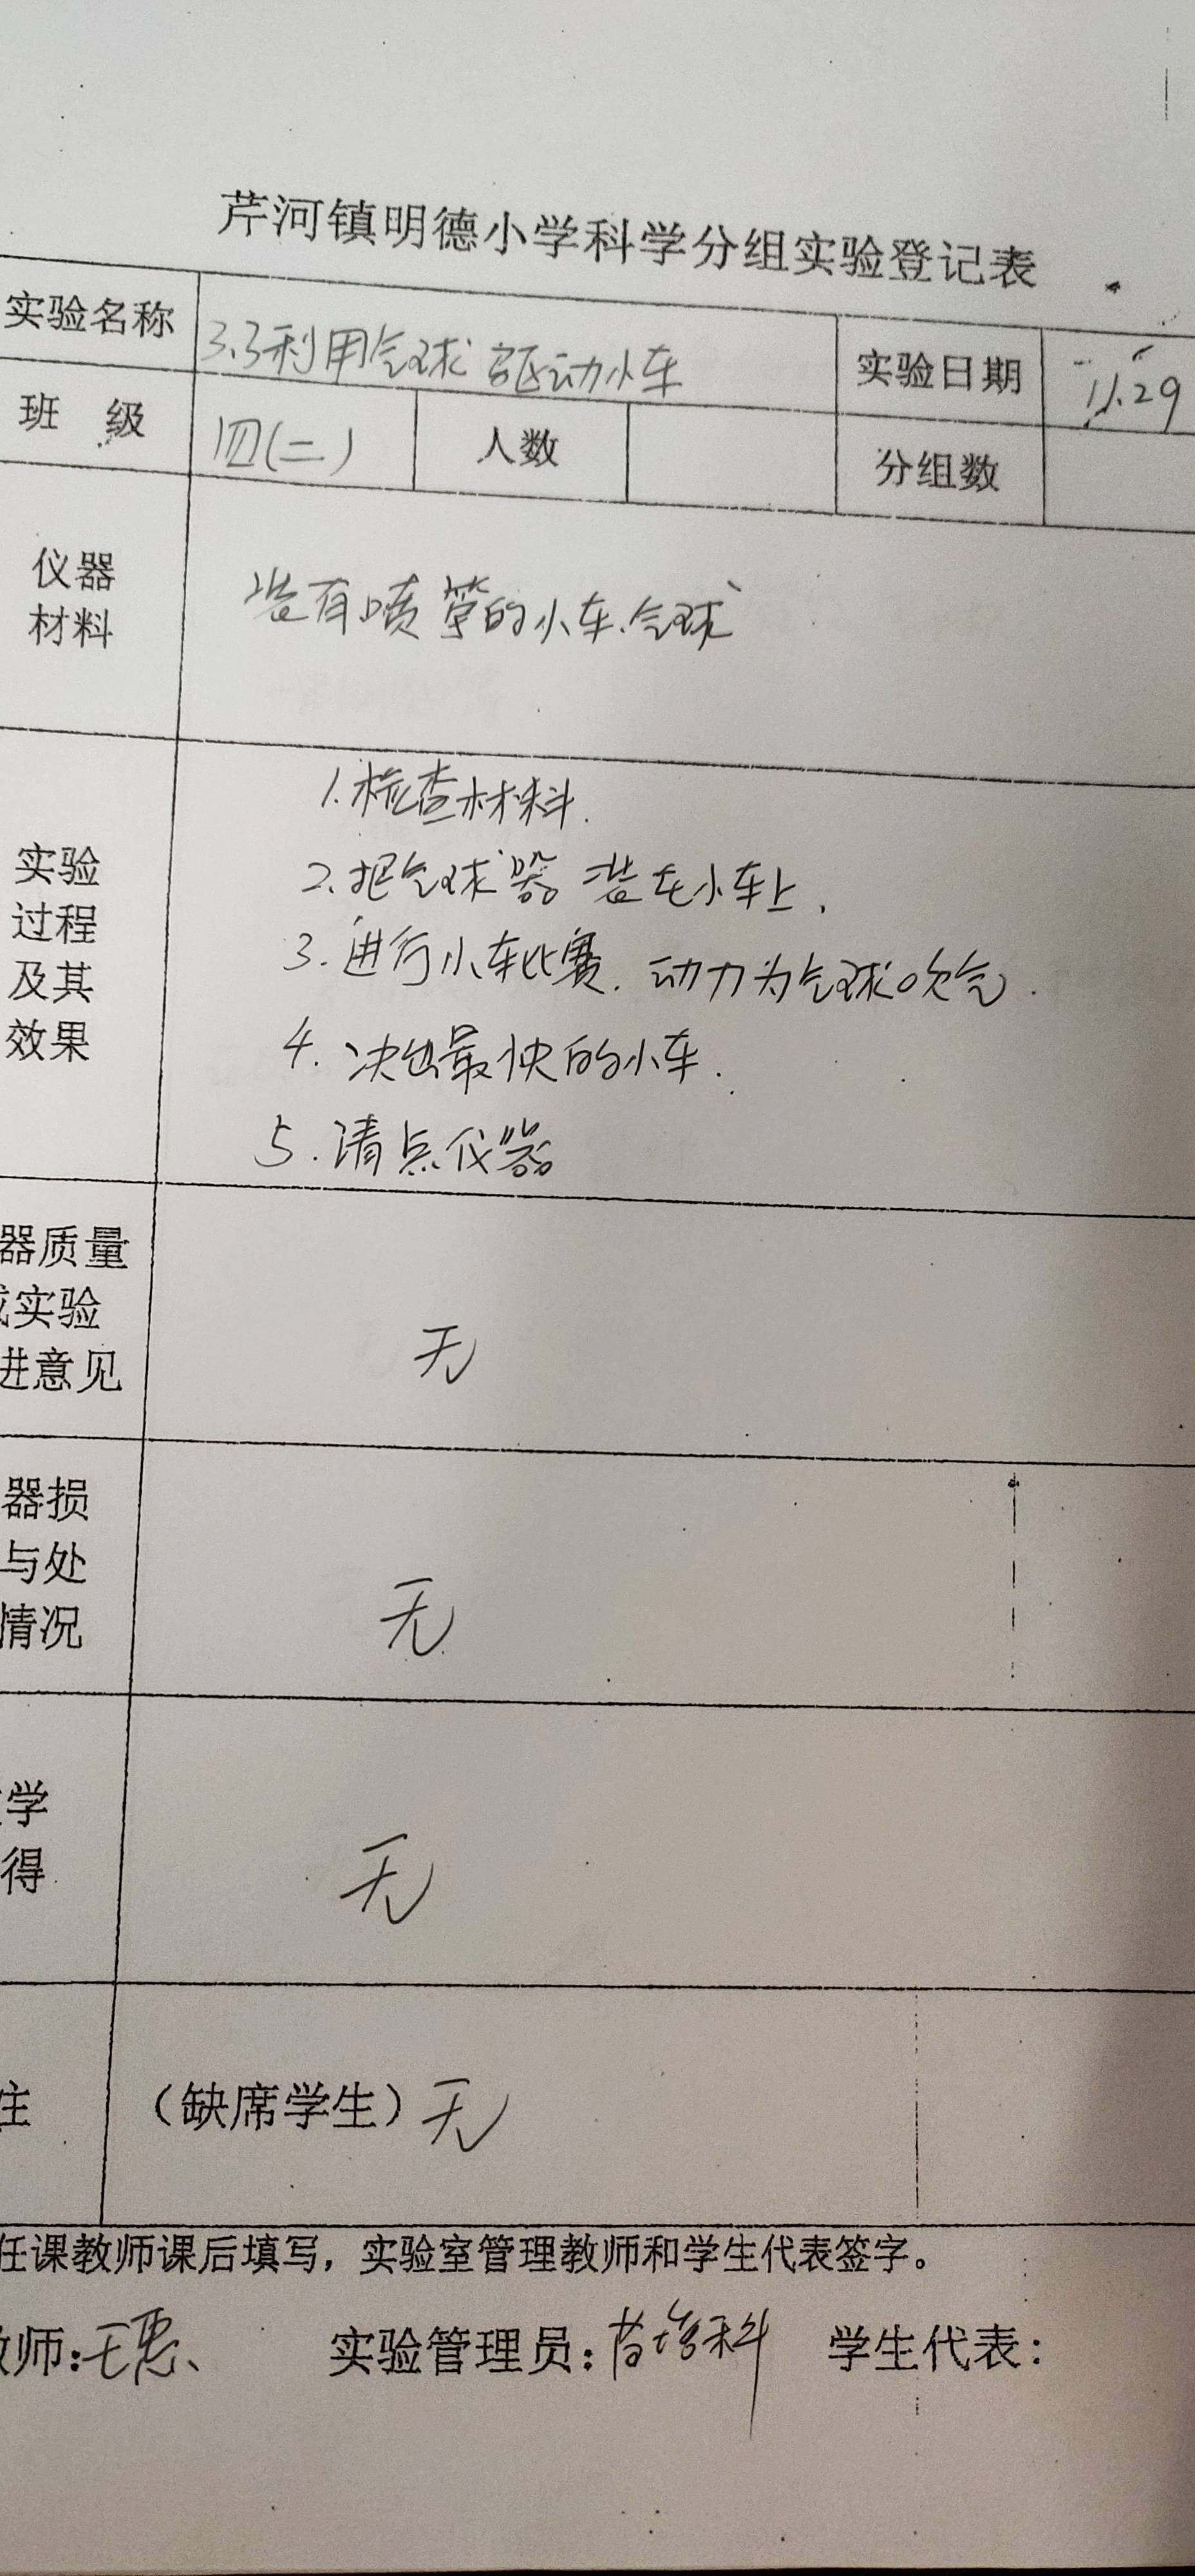 芹河镇明德小学科学分组实验登记表
实验名称 3.3利用气球驱动小车 实验日期 11.29
班 级 四(二) 人数 分组数
仪器
材料
装有喷管的小车.气球
1.检查材料.
实验
过程
及其
效果
2.把气球器装在小车上.
3.进行小车比赛.动力为气球吹气.
4.决出最快的小车.
5.清点仪器
器质量
实验
进意见
无
器损
与处
情况
无
学
得
无
注 (缺席学生)无
任课教师课后填写，实验室管理教师和学生代表签字。
师: 实验管理员: 学生代表: